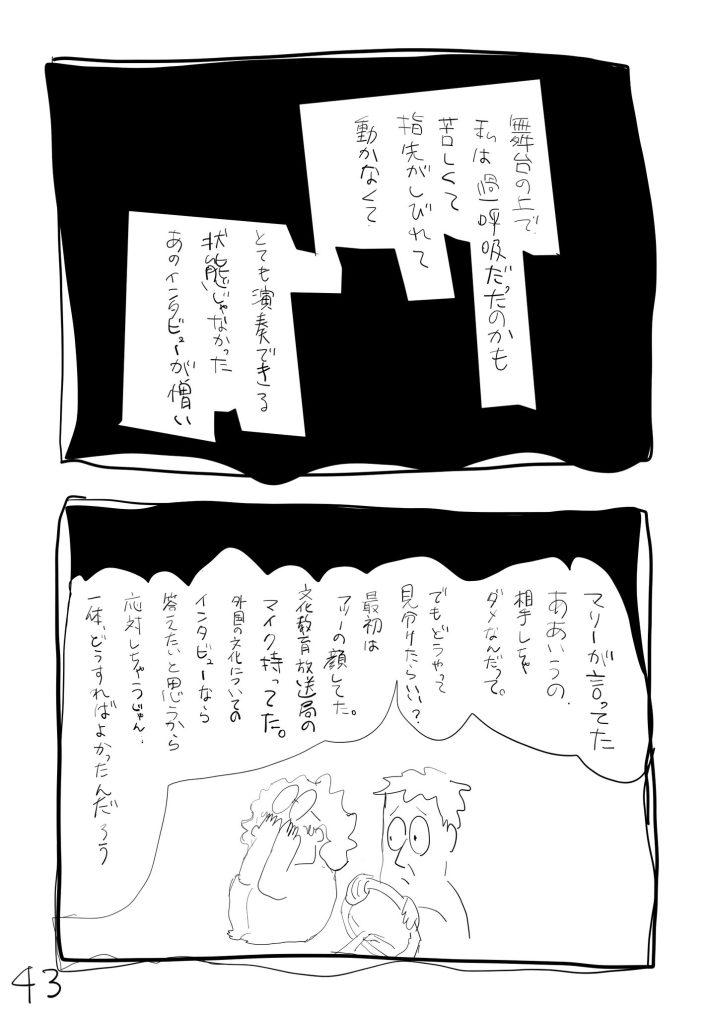 舞台の上で
私は過呼吸だったのかも
苦しくて
指先がしびれて
動かなくて
とても演奏できる
状態じゃなかった
あのインタビューが憎い
マリーが言ってた
ああいうの、
相手しちゃ
ダメなんだって。
でもどうやって
見分けたらいい？
最初は
マリーの顔してた。
文化教育放送局の
マイク持ってた。
外国の文化についての
インタビューなら
答えたいと思うから
応対しちゃうじゃん…
一体、どうすればよかったんだろう
43